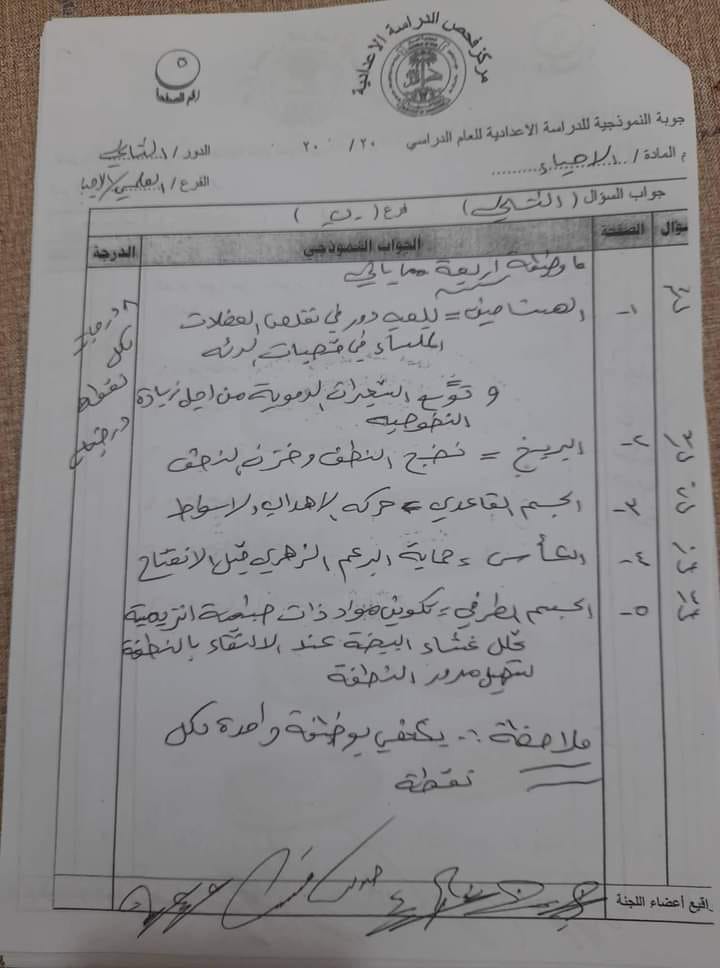 مركز فحص الدراسة الاعدادية
رقم الصفحة
جوبة النموذجية للدراسة الاعدادية للعام الدراسي ٢٠ / ٢٠
الدور /
م المادة / الاحياء
الفرع / العلمي/الاحيا
جواب السؤال ( ) فرع ( ب )
سؤال الصفحة الجواب النموذجي الدرجة
ما وظيفة اربعة مما يأتي
١- الهستامين = يلعب دور في تقلص العضلات
الملساء في قصبات الرئه
و توسّع الشعيرات الدموية من اجل زيادة
النضوحيه
٢- البربخ = نضج النطف وخزنه النطف
٣- الجسم القاعدي = حركه الاهداب والاسواط
٤- الكأس = حماية البرعم الزهري قبل الانفتاح
٥- الجسم الطرفي = تكوين مواد ذات طبيعة انزيمية
تحلل غشاء البيضة عند الالتقاء بالنطفة
لتسهيل مرور النطفة
ملاحظة :- يكتفي بوظيفة واحدة لكل
نقطة
٨ درجات
لكل
نقطة
درجتان
اقيع أعضاء اللجنة